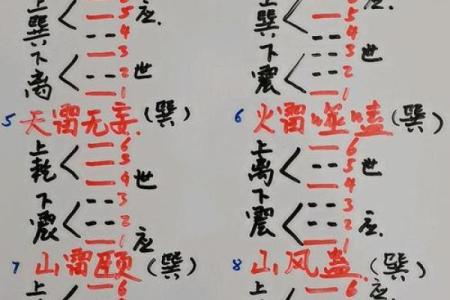 上 6 应.
巽 5
4
下 3
离 2 世
1
上 6 应.
巽 5
4
下 3
震 2 世
1
5 天雷无妄.(巽)
上 6
乾 5
4 世
下 3
震 2
1 应
6 火雷噬嗑(巽)
上 6
离 5 世
4
下 3
震 2 应.
1
7 山雷颐(巽)
上 6
8 山风蛊.(巽)
上 6 应